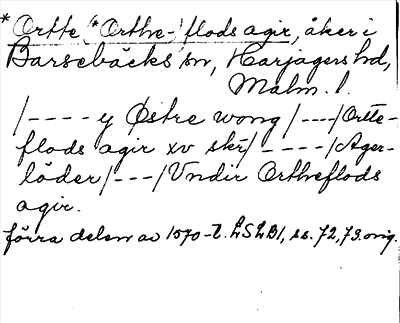 *Ortte (*Orthe-)flods agir, åker i
Barsebäcks sn, Harjagers hd,
Malm. l.
/----y Østre wong/---/Ortte-
flods agir xv skr/----/Ager-
löder/---/Vndir Ortheflods
agir.
förra delen av 1570-t. LSLB1, ss. 72, 73. orig.